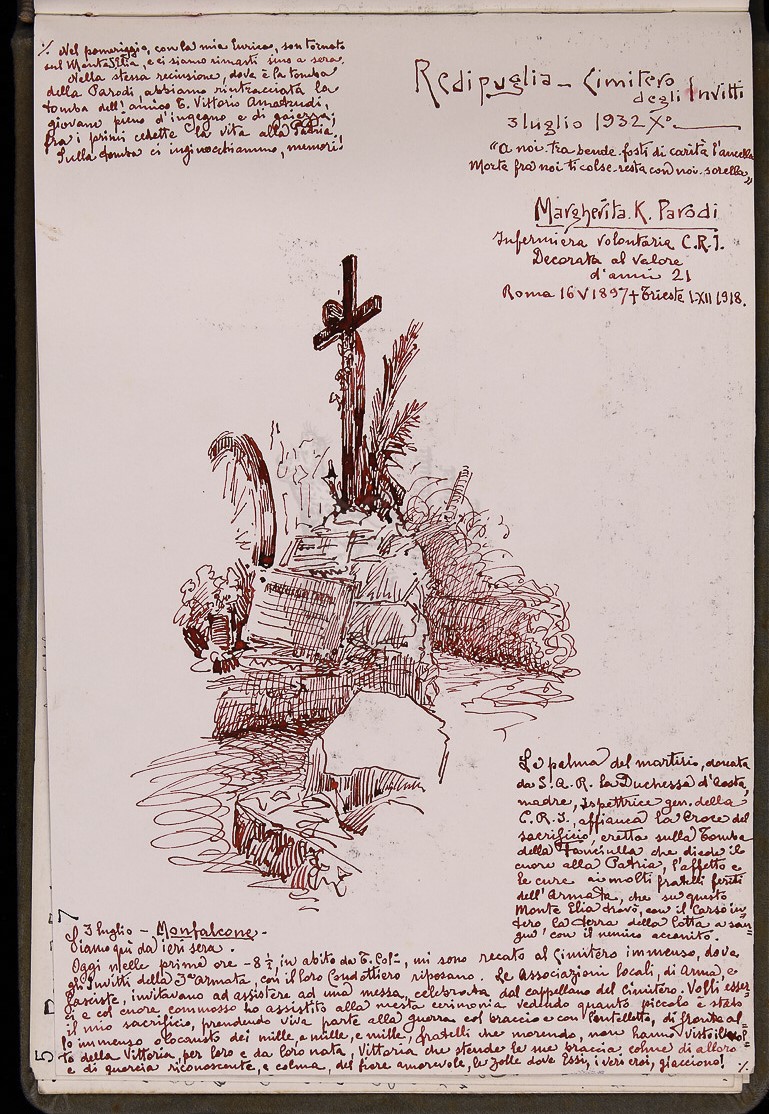 Redipuglia - Cimitero
degli Invitti
3 luglio 1932 X°.
"A noi, tra bende, fosti di carità l'ancella
Morte fra noi ti colse, resta con noi, sorella"
Margherita. K. Parodi
Infermiera volontaria C.R.I.
Decorata al valore
d'anni 21
Roma 16 V 1897 † Trieste 1.XII 1918.
La palma del martirio, donata
da S. A. R. la Duchessa d'Aosta,
madre, Ispettrice gen. della
C.R.I., affianca la Croce del
sacrificio, eretta sulla Tomba
della Fanciulla che diede il
cuore alla Patria, l'affetto e
le cure ai molti fratelli feriti
dell'Armata, che su questo
Monte Elia trovò, con il Carso in-
tero la terra della lotta a san=
gue con il nemico accanito.
Il 3 luglio - Monfalcone.-
Siamo qui da ieri sera.
Oggi nelle prime ore - 8½, in abito da T. Col-, mi sono recato al Cimitero immenso, dove
gli Invitti della 3ª armata, con il loro Condottiero riposano. Le Associazioni locali, di Arma, e
Fasciste, invitavano ad assistere ad una messa, celebrata dal cappellano del cimitero. Volli esser=
ci e col cuore commosso ho assistito alla mesta cerimonia vedendo quanto piccolo è stato
il mio sacrificio, prendendo viva parte alla guerra col braccio e con l'intelletto, di fronte al=
lo immenso olocausto dei mille, e mille, e mille, fratelli che morendo, non hanno visto il vol=
to della Vittoria, per loro e da loro nata, Vittoria che stende le sue braccia colme di alloro
e di quercia riconoscente, e colma, del fiore amorevole, le zolle dove Essi, i veri eroi, giacciono! ·/.
·/. Nel pomeriggio, con la mia Enrica, son tornato
sul Monte S. Elia, e ci siamo rimasti sino a sera.
Nella stessa recinsione, dove è la tomba
della Parodi, abbiamo rintracciata la
tomba dell'amico T. Vittorio
giovane pieno d'ingegno e di gaiezza;
fra i primi cedette la vita alla Patria,
Sulla tomba ci inginocchiammo, memori!